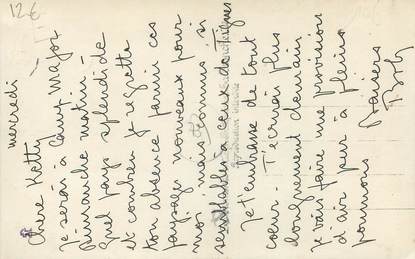 12€
mercredi
Chère Ketty
Je serai à Camp Major
Dimanche matin -
Quel pays splendide
et combien je regrette
ton absence parmi ces
paysages nouveaux pour
moi, mais connus si
semblables à ceux de
Je t'embrasse de tout
coeur - T'écrirai plus
longuement demain.
Je vais faire une provision
d'air pur à pleins
poumons
Baisers
Boby